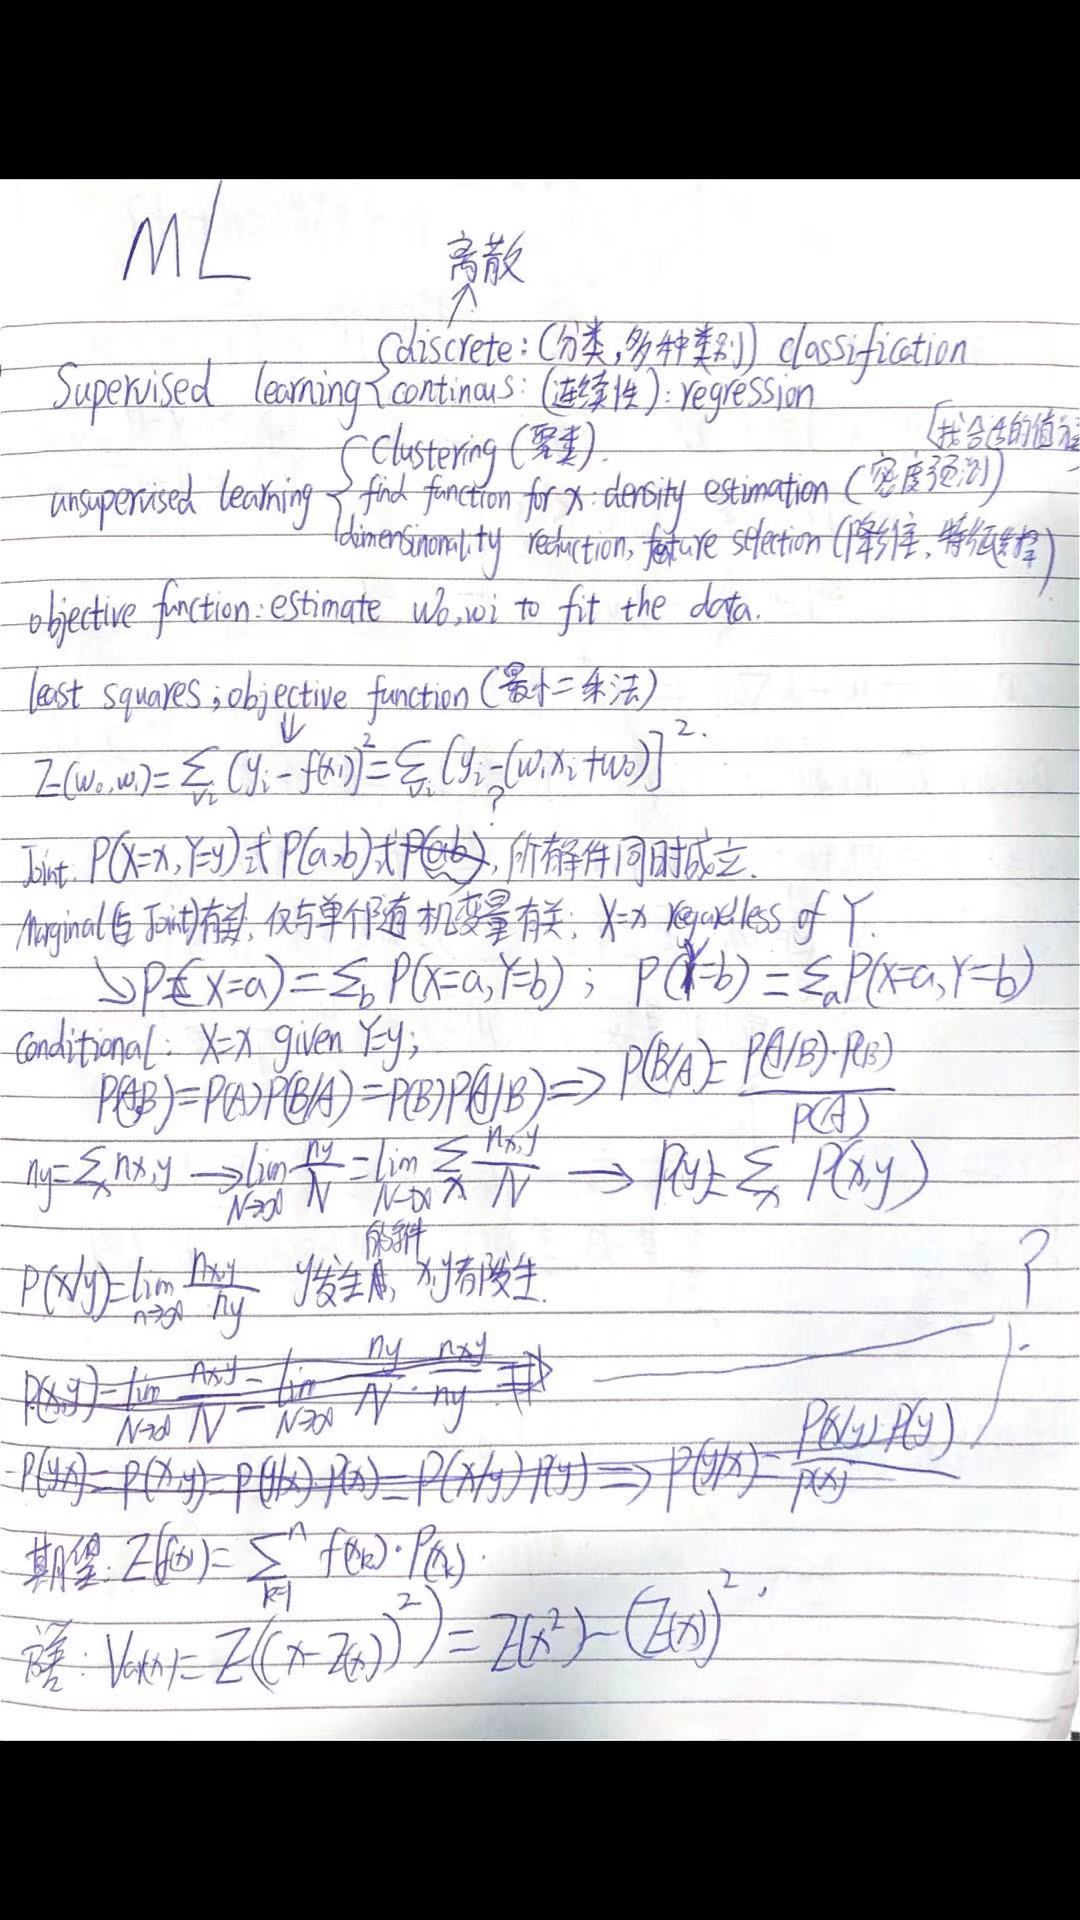 ML
离散
discrete: (分类, 多种类别) classification
Supervised learning { continous: (连续性): regression
clustering (聚类).
[找合适的值
unsupervised learning { find function for x: density estimation (密度预测)
dimensinonality reduction, feature selection (降维, 特征选择)
objective function: estimate w₀, wi to fit the data.
least squares; objective function (最小二乘法)
↓
Z(w₀, w₁) = Σ∀i (yi - f(xi))² = Σ∀i [yi - (w₁xi + w₀)]².
?
Joint: P(X=x, Y=y) 或 P(a,b) 或 P(ab), 所有条件同时成立.
Marginal (与 Joint) 有关, 仅与单个随机变量有关; X=x regardless of Y.
↘ P(X=a) = Σb P(X=a, Y=b) ; P(Y=b) = Σa P(X=a, Y=b)
Conditional: X=x given Y=y;
P(AB) = P(A) P(B/A) = P(B) P(A/B) => P(B/A) = P(A/B)·P(B) / P(A)
ny = Σx nx,y → lim N→∞ ny/N = lim N→∞ Σx nx,y/N → P(y) = Σx P(x,y)
的条件
P(x/y) = lim n→∞ nx,y/ny y发生, x,y都发生.
?
P(x,y) = lim N→∞ nx,y/N = lim N→∞ ny/N · nx,y/ny =>
P(yx) = P(x,y) = P(y/x)·P(x) = P(x/y)·P(y) => P(y/x) = P(x/y)·P(y) / P(x)
期望: Z(f(x)) = Σ k=1 n f(xk)·P(xk).
Var(x) = Z((x - Z(x))²) = Z(x²) - (Z(x))².